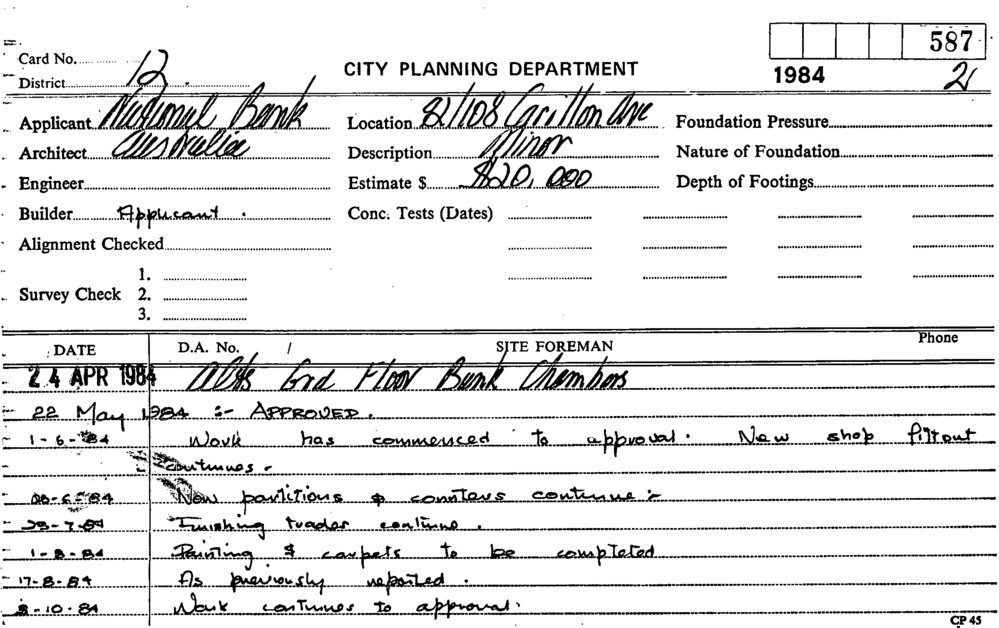 587
Card No.
12
CITY PLANNING DEPARTMENT
1984
2
District
Applicant National Bank
Location 82/108 Carillon Ave
Foundation Pressure
Architect Australia
Description Minor
Nature of Foundation
Engineer
Estimate $ $20,000
Depth of Footings
Builder Applicant.
Conc. Tests (Dates)
Alignment Checked
1.
Survey Check 2.
3.
DATE D.A. No. / SITE FOREMAN Phone
24 APR 1984 Alts Grd Floor Bank Chambers
22 May 1984 :- APPROVED.
1-6-84 Work has commenced to approval. New shop fittout
continues -
-6-84 New partitions & counters continue :-
-7-84 Finishing trades continue.
1-8-84 Painting & carpets to be completed
17-8-84 As previously reported.
8-10-84 Work continues to approval.
CP 45